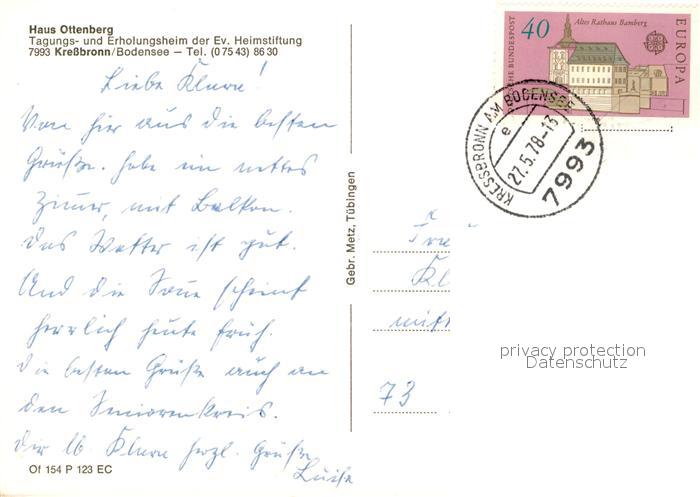 Haus Ottenberg
Tagungs- und Erholungsheim der Ev. Heimstiftung
7993 Kreßbronn/Bodensee — Tel. (0 75 43) 86 30
Liebe Klara!
Von hier aus die besten
Grüße. habe ein nettes
Zimer, mit Balkon.
Das Wetter ist gut.
Und die Sone scheint
herrlich heute früh.
die besten Grüße auch an
den Seniorenkreis.
der lb. Klara herzl. Grüße
Luise
Of 154 P 123 EC
Gebr. Metz, Tübingen
40
Altes Rathaus Bamberg
EUROPA
SCHE BUNDESPOST
KRESSBRONN AM BODENSEE
e
27.5.78-13
7993
Frau
Kl
73
privacy protection
Datenschutz